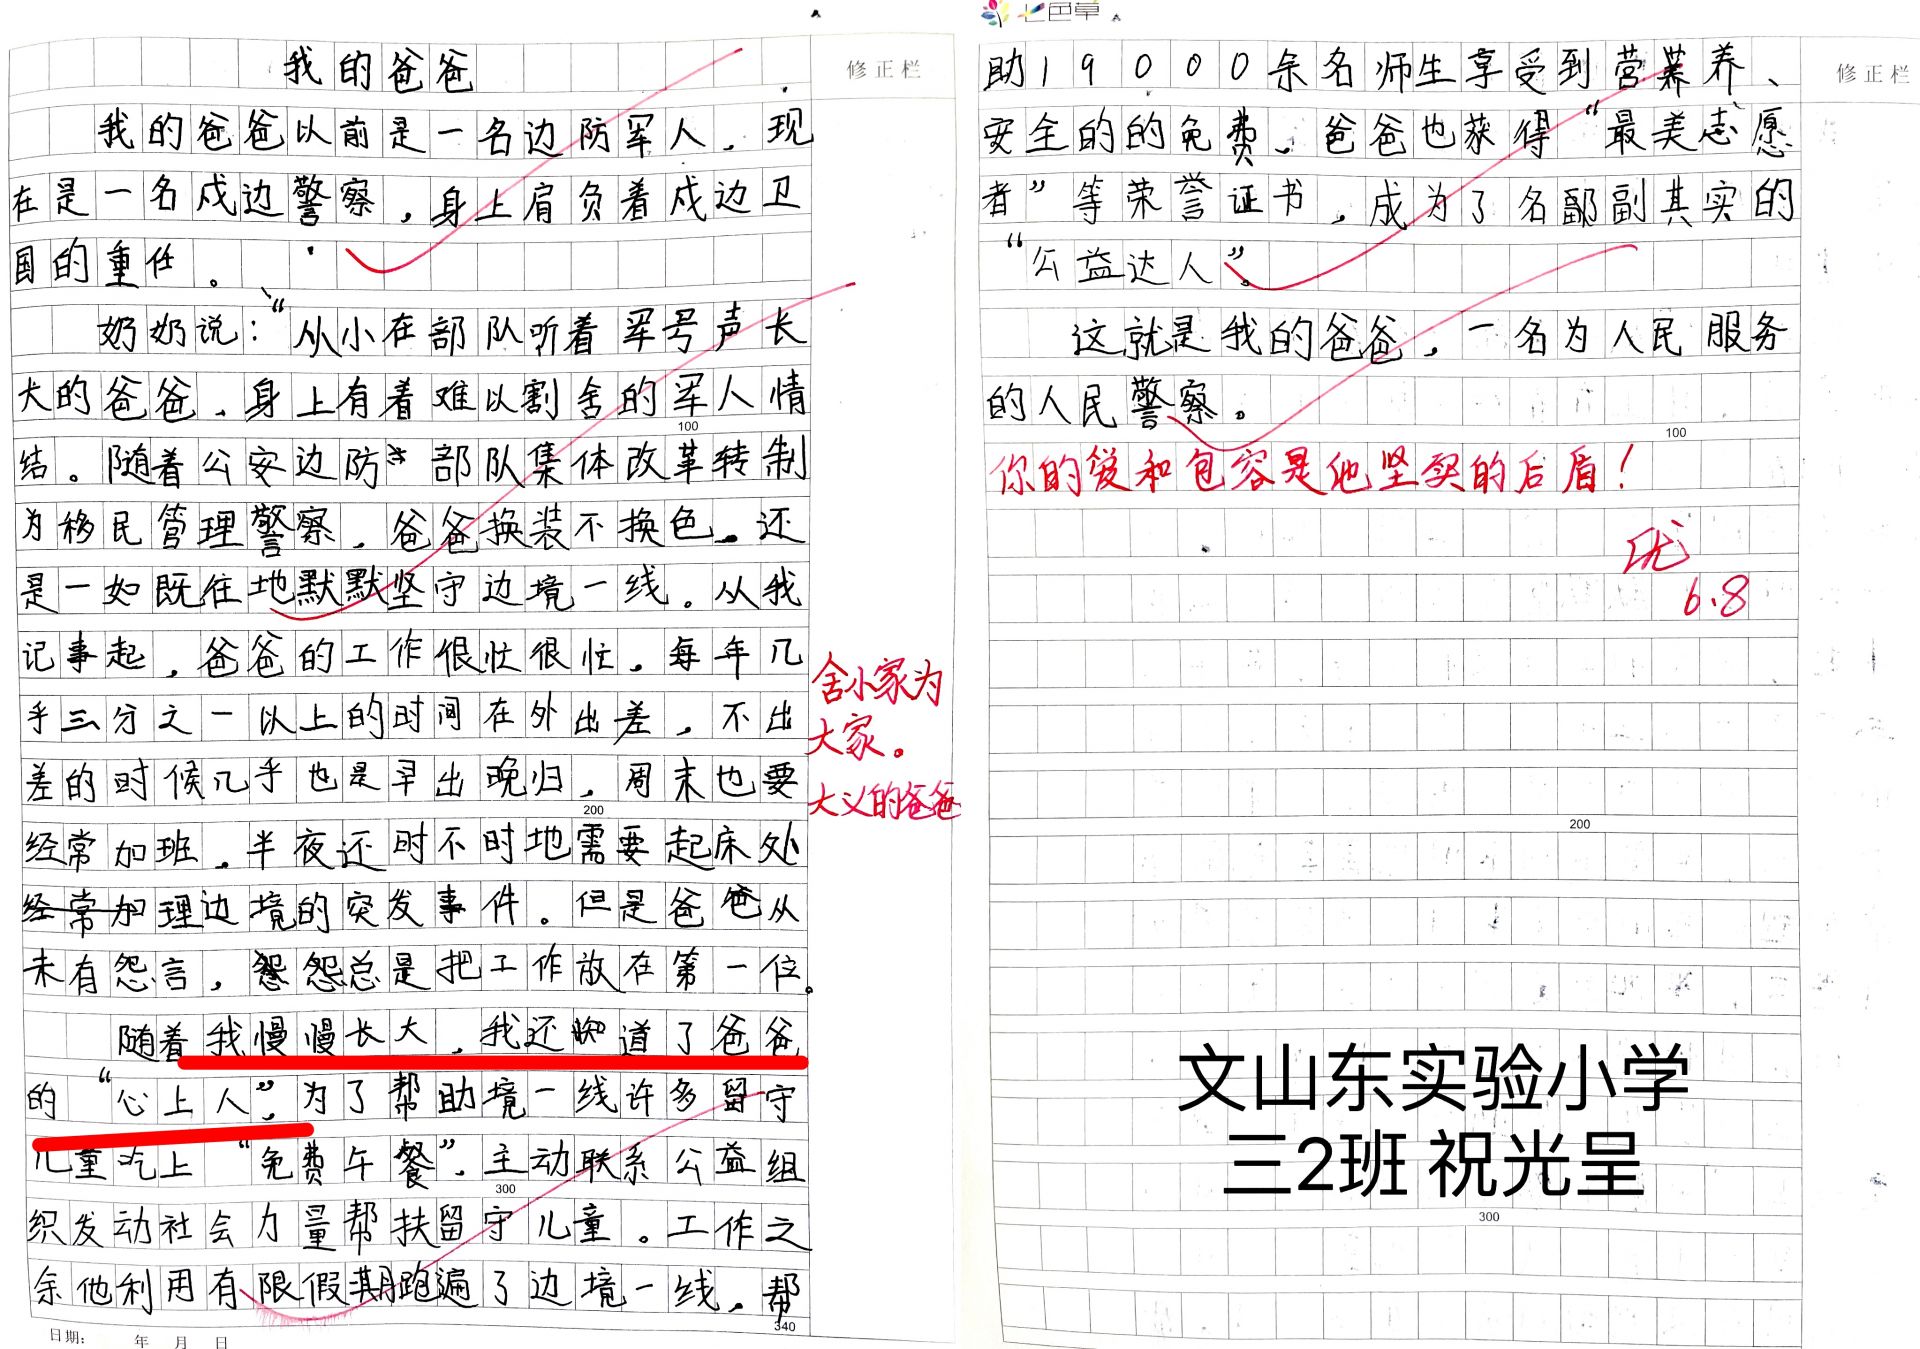 我的爸爸
修正栏
我的爸爸以前是一名边防军人，现
在是一名戍边警察，身上肩负着戍边卫
国的重任。
奶奶说：“从小在部队听着军号声长
大的爸爸，身上有着难以割舍的军人情
100
结。随着公安边防部队集体改革转制
为移民管理警察，爸爸换装不换色，还
是一如既往地默默坚守边境一线。从我
记事起，爸爸的工作很忙很忙，每年几
乎三分之一以上的时间在外出差，不出
差的时候几乎也是早出晚归，周末也要
200
经常加班，半夜还时不时地需要起床处
经常加理边境的突发事件。但是爸爸从
未有怨言，怨总是把工作放在第一位。
随着我慢慢长大，我还知道了爸爸
的“心上人”，为了帮助境一线许多留守
儿童吃上“免费午餐”，主动联系公益组
300
织发动社会力量帮扶留守儿童。工作之
余他利用有限假期跑遍了边境一线，帮
340
日期： 年 月 日
舍小家为
大家。
大义的爸爸
七色草
助19000余名师生享受到营养、
修正栏
安全的的免费，爸爸也获得“最美志愿
者”等荣誉证书，成为了名副其实的
“公益达人”。
这就是我的爸爸，一名为人民服务
的人民警察。
100
你的爱和包容是他坚实的后盾！
优
6.8
200
文山东实验小学
三2班 祝光呈
300